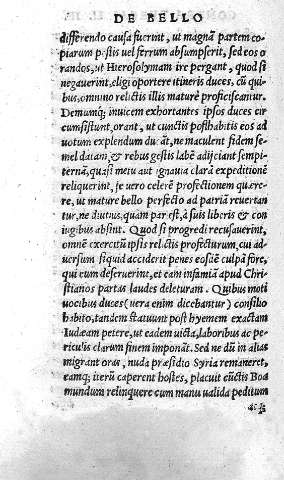 DE BELLO
differendo causa fuerint, ut magnā partem co
piarum pestis uel ferrum absumpserit, sed eos o
randos, ut Hierosolymam ire pergant, quod si
negauerint, eligi oportere itineris duces, cū qui
bus, omnino relictis illis mature proficiscantur.
Demumq́; inuicem exhortantes ipsos duces cir
cumsistunt, orant, ut cunctis posthabitis eos ad
uotum explendum ducāt, ne maculent fidem se
mel datam, & rebus gestis labē adijciant sempi
ternā, quasi metu aut ignauia clarā expeditionē
reliquerint, se uero celerē profectionem quære
re, ut mature bello perfecto ad patriā reuertan
tur, ne diutius, quam par est, à suis liberis & con
iugibus absint. Quod si progredi recusauerint,
omnē exercitū ipsis relictis profecturum, cui ad
uersum siquid acciderit penes eos eē culpā fore,
qui eum deseruerint, et eam infamiā apud Chri
stianos partas laudes deleturam. Quibus moti
uocibus duces (uera enim dicebantur) consilio
habito, tandem statuunt post hyemem exactam
Iudæam petere, ut eadem uicta, laboribus ac pe
riculis clarum finem imponāt. Sed ne dū in alias
migrant oras, nuda præsidio Syria remaneret,
eamq; iterū caperent hostes, placuit cūctis Boa
mundum relinquere cum manu ualida peditum